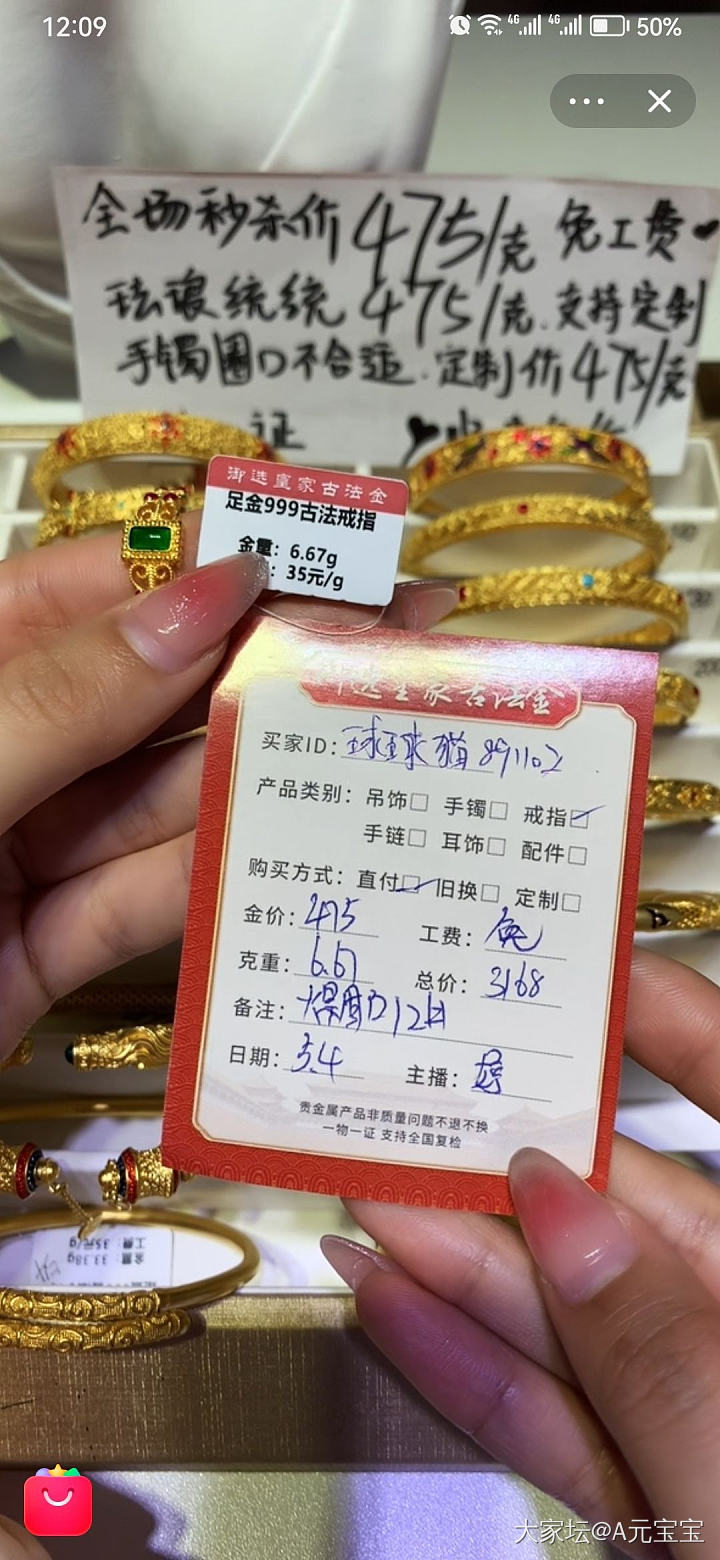 12:09
4G 4G 50%
全场秒杀价475/克 免工费
珐琅统统475/克.支持定制
手镯圈口不合适.定制价475/克
证
御选皇家古法金
足金999古法戒指
金重：6.67g
：35元/g
御选皇家古法金
买家ID：球球猫891102
产品类别：吊饰 手镯 戒指
手链 耳饰 配件
购买方式：直付 旧换 定制
金价：475 工费：免
克重：6.67 总价：3168
备注：12
日期：3.4 主播：
贵金属产品非质量问题不退不换
一物一证 支持全国复检
工费：35元/g
金重：33.38g
大家坛@A元宝宝